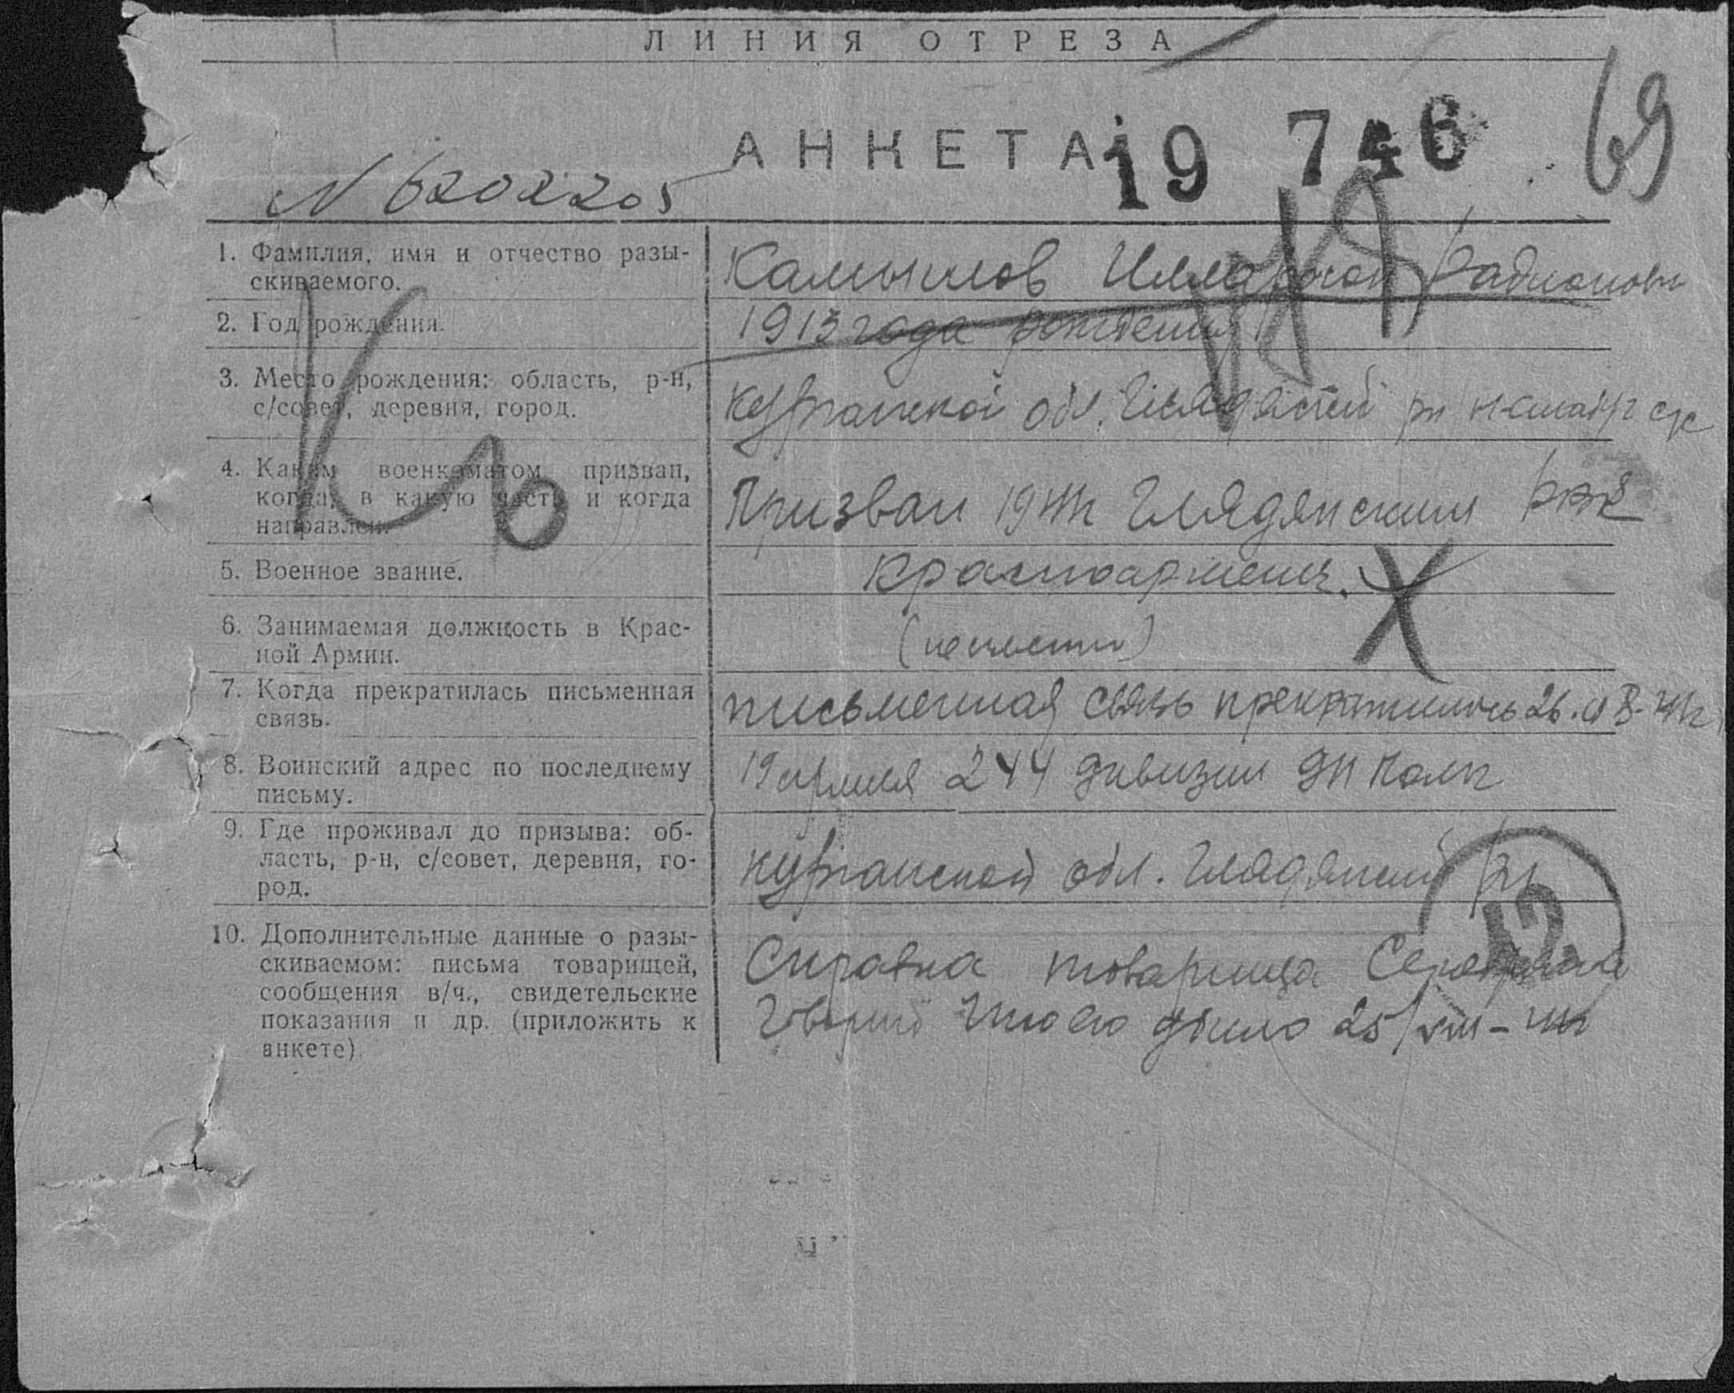 ЛИНИЯ ОТРЕЗА
АНКЕТА 19 746 69
N 6202205
1. Фамилия, имя и отчество разы-
скиваемого.
Камышов Радионови
2. Год рождения.
1913 года рождения
3. Место рождения: область, р-н,
с/совет, деревня, город.
Курганской обл. рн
4. Каким военкоматом призван,
когда, в какую часть и когда
направлен.
Призван 1941г Глядянским РВК
5. Военное звание.
Красноармеец.
6. Занимаемая должность в Крас-
ной Армии.
7. Когда прекратилась письменная
связь.
письменная связь прекратилось 26.
8. Воинский адрес по последнему
письму.
19 армия 244 дивизии
9. Где проживал до призыва: об-
ласть, р-н, с/совет, деревня, го-
род.
Курганской обл. Глядянский рн
12
10. Дополнительные данные о разы-
скиваемом: письма товарищей,
сообщения в/ч., свидетельские
показания и др. (приложить к
анкете)
Справка товарища
25/VIII-41г